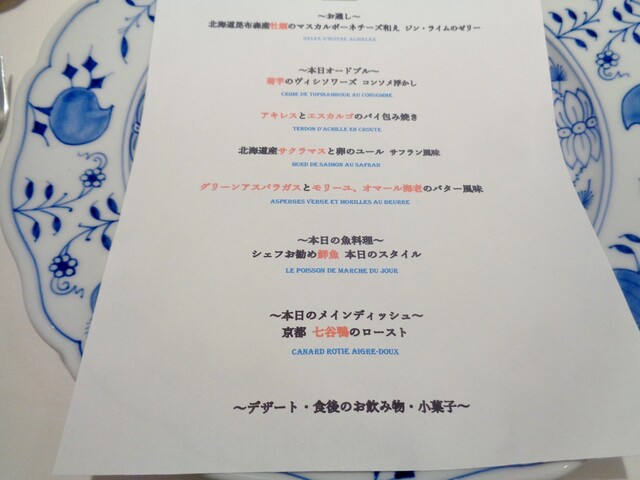 ～お通し～
北海道昆布森産牡蠣のマスカルポーネチーズ和え ジン・ライムのゼリー
GELEE D'HUITRE ACIDULEE
～本日オードブル～
菊芋のヴィシソワーズ コンソメ浮かし
CREME DE TOPINAMBOUR AU CONSOMME
アキレスとエスカルゴのパイ包み焼き
TENDON D'ACHILLE EN CROUTE
北海道産サクラマスと卵のユール サフラン風味
NURD DE SAIMON AU SAFRAN
グリーンアスパラガスとモリーユ、オマール海老のバター風味
ASPERGES VERGE ET MORILLES AU BEURRE
～本日の魚料理～
シェフお勧め鮮魚 本日のスタイル
LE POISSON DE MARCHE DU JOUR
～本日のメインディッシュ～
京都 七谷鴨のロースト
CANARD ROTIE AIGRE-DOUX
～デザート・食後のお飲み物・小菓子～